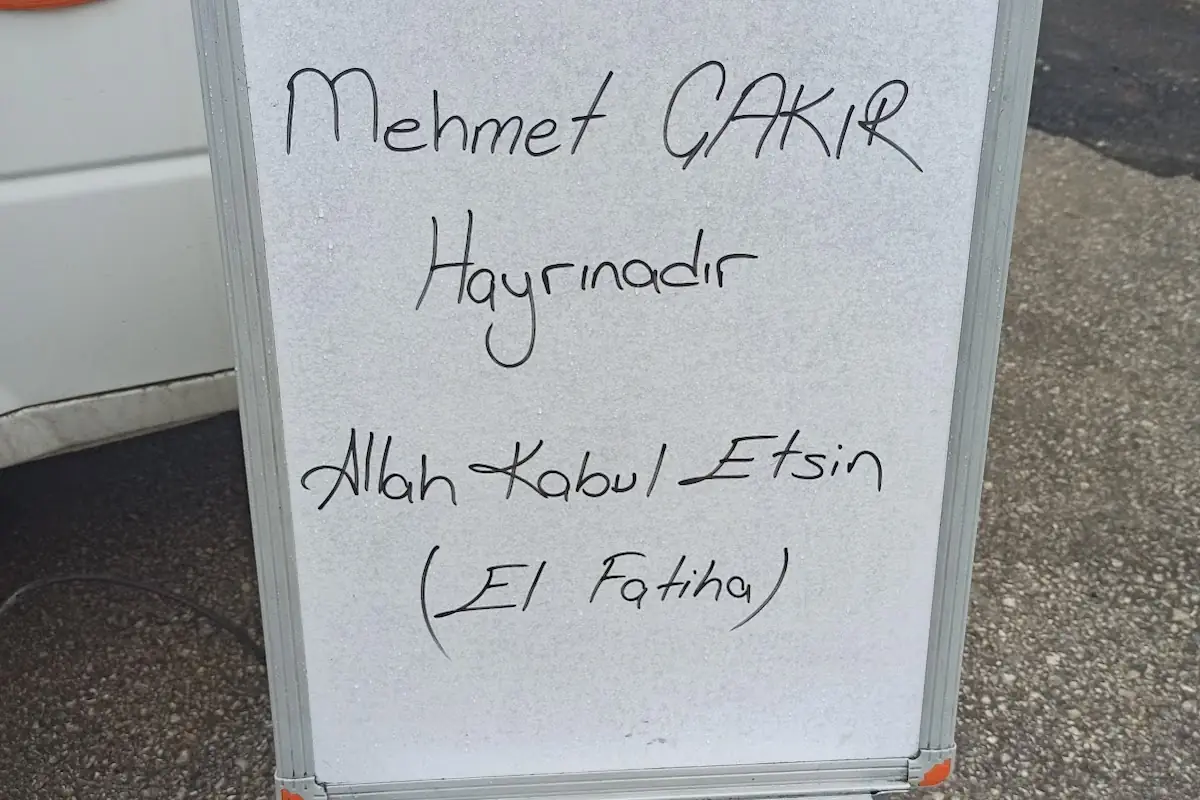 Mehmet ÇAKIR
Hayrınadır
Allah Kabul Etsin
(El Fatiha)